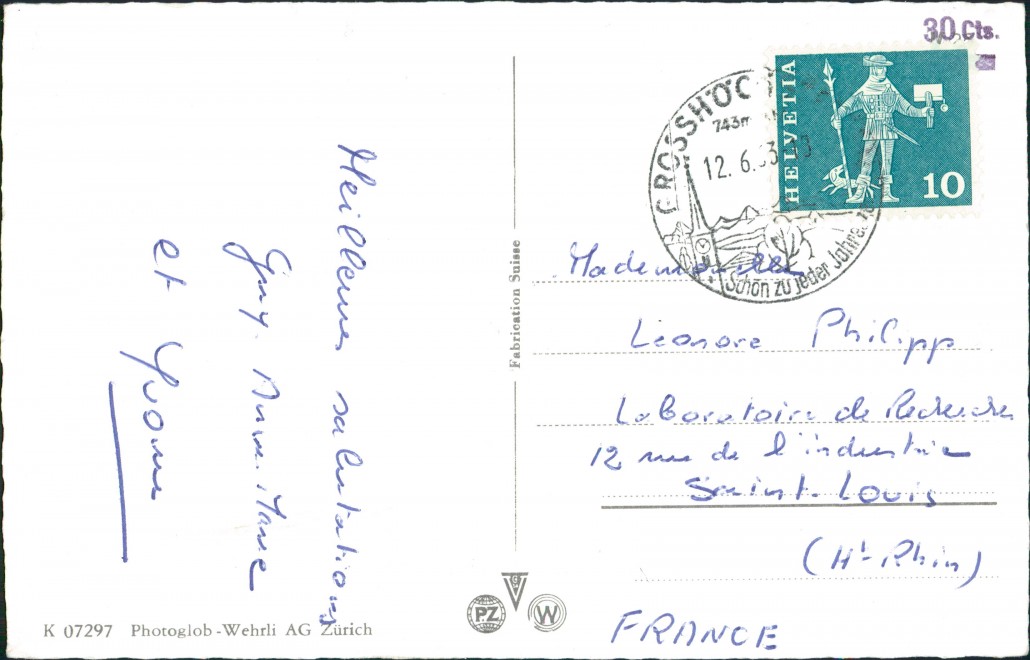 30 Cts.
HELVETIA
10
GROSSHÖC
743m
12. 6. 63
Schön zu jeder Jahresz
Meilleures salutations
Guy. Anne-Marie
et Yvonne
Fabrication Suisse
Mademoiselle
Léonore Philipp
Laboratoire de Recherches
12 rue de l'industrie
Saint. Louis
(Ht-Rhin)
FRANCE
PZ
W
K 07297 Photoglob-Wehrli AG Zürich